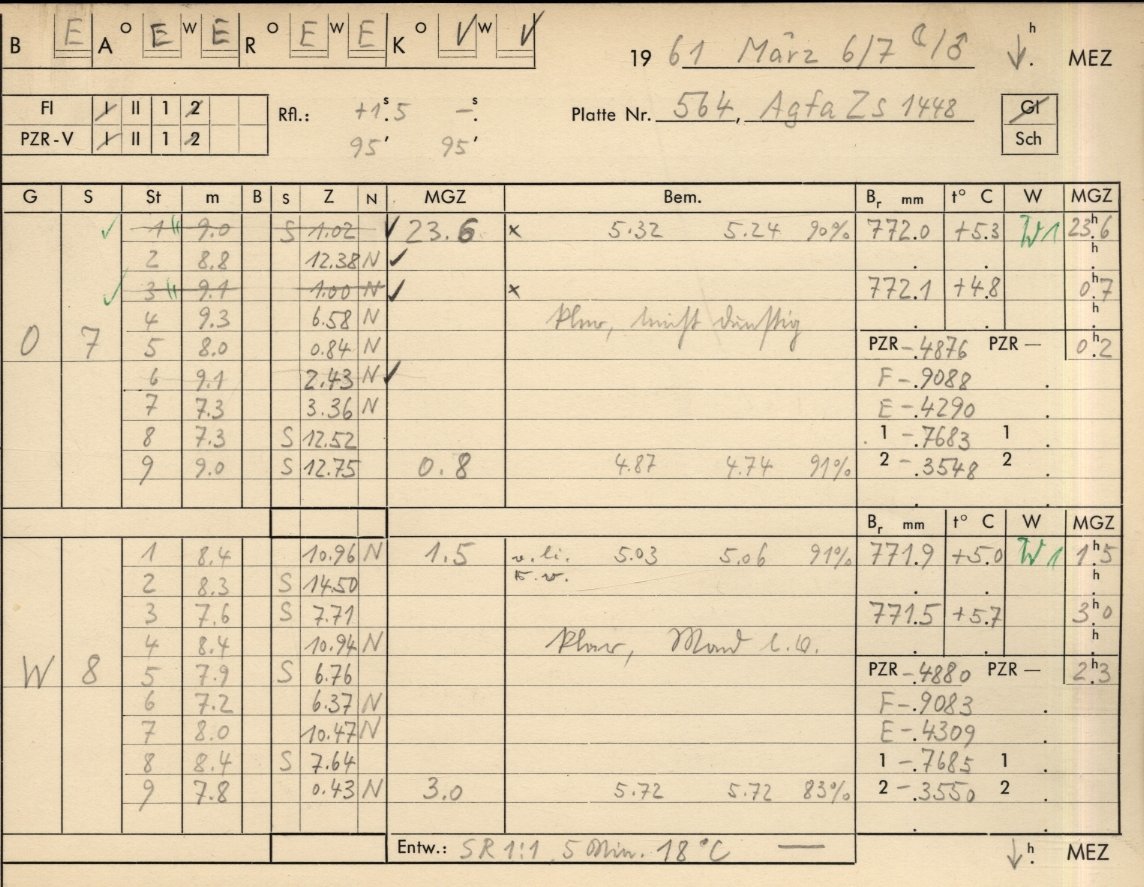 B E A O E W E R O E W E K O V W V 19 61 März 6/7 ☾/♂ ↓.h MEZ
FI I II 1 2 Rfl.: +1.s5 –.s Platte Nr. 564, Agfa ZS 1448 Gl
PZR-V I II 1 2 95' 95' Sch
G S St m B s Z N MGZ Bem. Br mm t° C W MGZ
✓ 1 9.0 S 1.02 ✓ 23.6 × 5.32 5.24 90% 772.0 +5.3 W1 23.h6
2 8.8 12.38 N ✓ . . .h
✓ 3 9.1 1.00 N ✓ × 772.1 +4.8 0.h7
4 9.3 6.58 N klar, leicht dunstig .h
0 7 5 8.0 0.84 N PZR -.4876 PZR — 0.h2
6 9.1 2.43 N ✓ F -.9088 .
7 7.3 3.36 N E -.4290 .
8 7.3 S 12.52 1 -.7683 1 .
9 9.0 S 12.75 0.8 4.87 4.74 91% 2 -.3548 2 .
Br mm t° C W MGZ
1 8.4 10.96 N 1.5 v. li. 5.03 5.06 91% 771.9 +5.0 W1 1.h5
2 8.3 S 14.50 . . .h
3 7.6 S 7.71 771.5 +5.7 3.h0
4 8.4 10.94 N klar, Mond l.Q. .h
W 8 5 7.9 S 6.76 PZR -.4880 PZR — 2.h3
6 7.2 6.37 N F -.9083 .
7 8.0 10.47 N E -.4309 .
8 8.4 S 7.64 1 -.7685 1 .
9 7.8 0.43 N 3.0 5.72 5.72 83% 2 -.3550 2 .
Entw.: SR 1:1, 5 Min. 18 °C — ↓.h MEZ